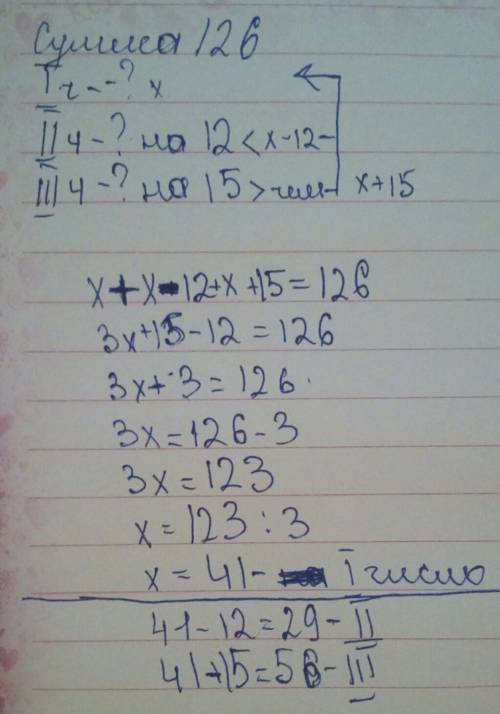 Сумма 126
I ч - ? x
II ч - ? на 12 < x-12
III ч - ? на 15 > чем x+15
x+x-12+x+15=126
3x+15-12=126
3x+3=126
3x=126-3
3x=123
x=123:3
x=41- I число
41-12=29-II
41+15=56-III